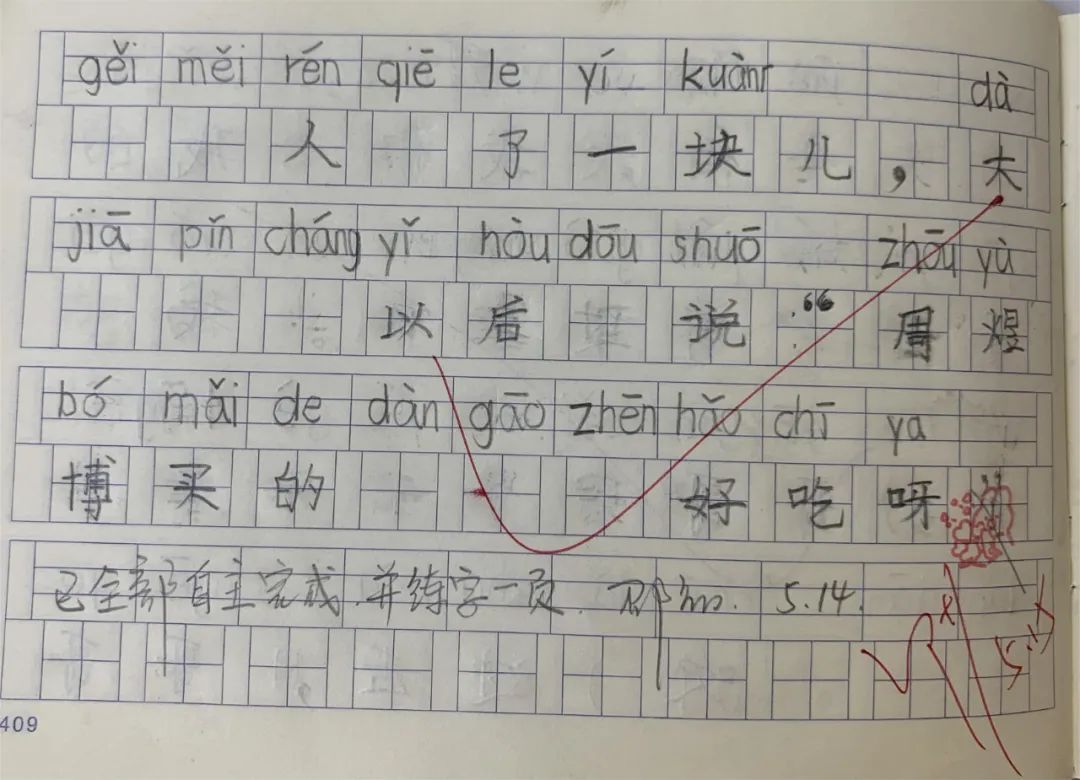 gěi měi rén qiē le yí kuànr dà
人 了 一 块 儿 , 大
jiā pǐn cháng yǐ hòu dōu shuō zhōu yù
以 后 说 :“ 周 煜
bó mǎi de dàn gāo zhēn hǎo chī ya
博 买 的 好 吃 呀
已全部自主完成.并练字一页. 5.14.
409